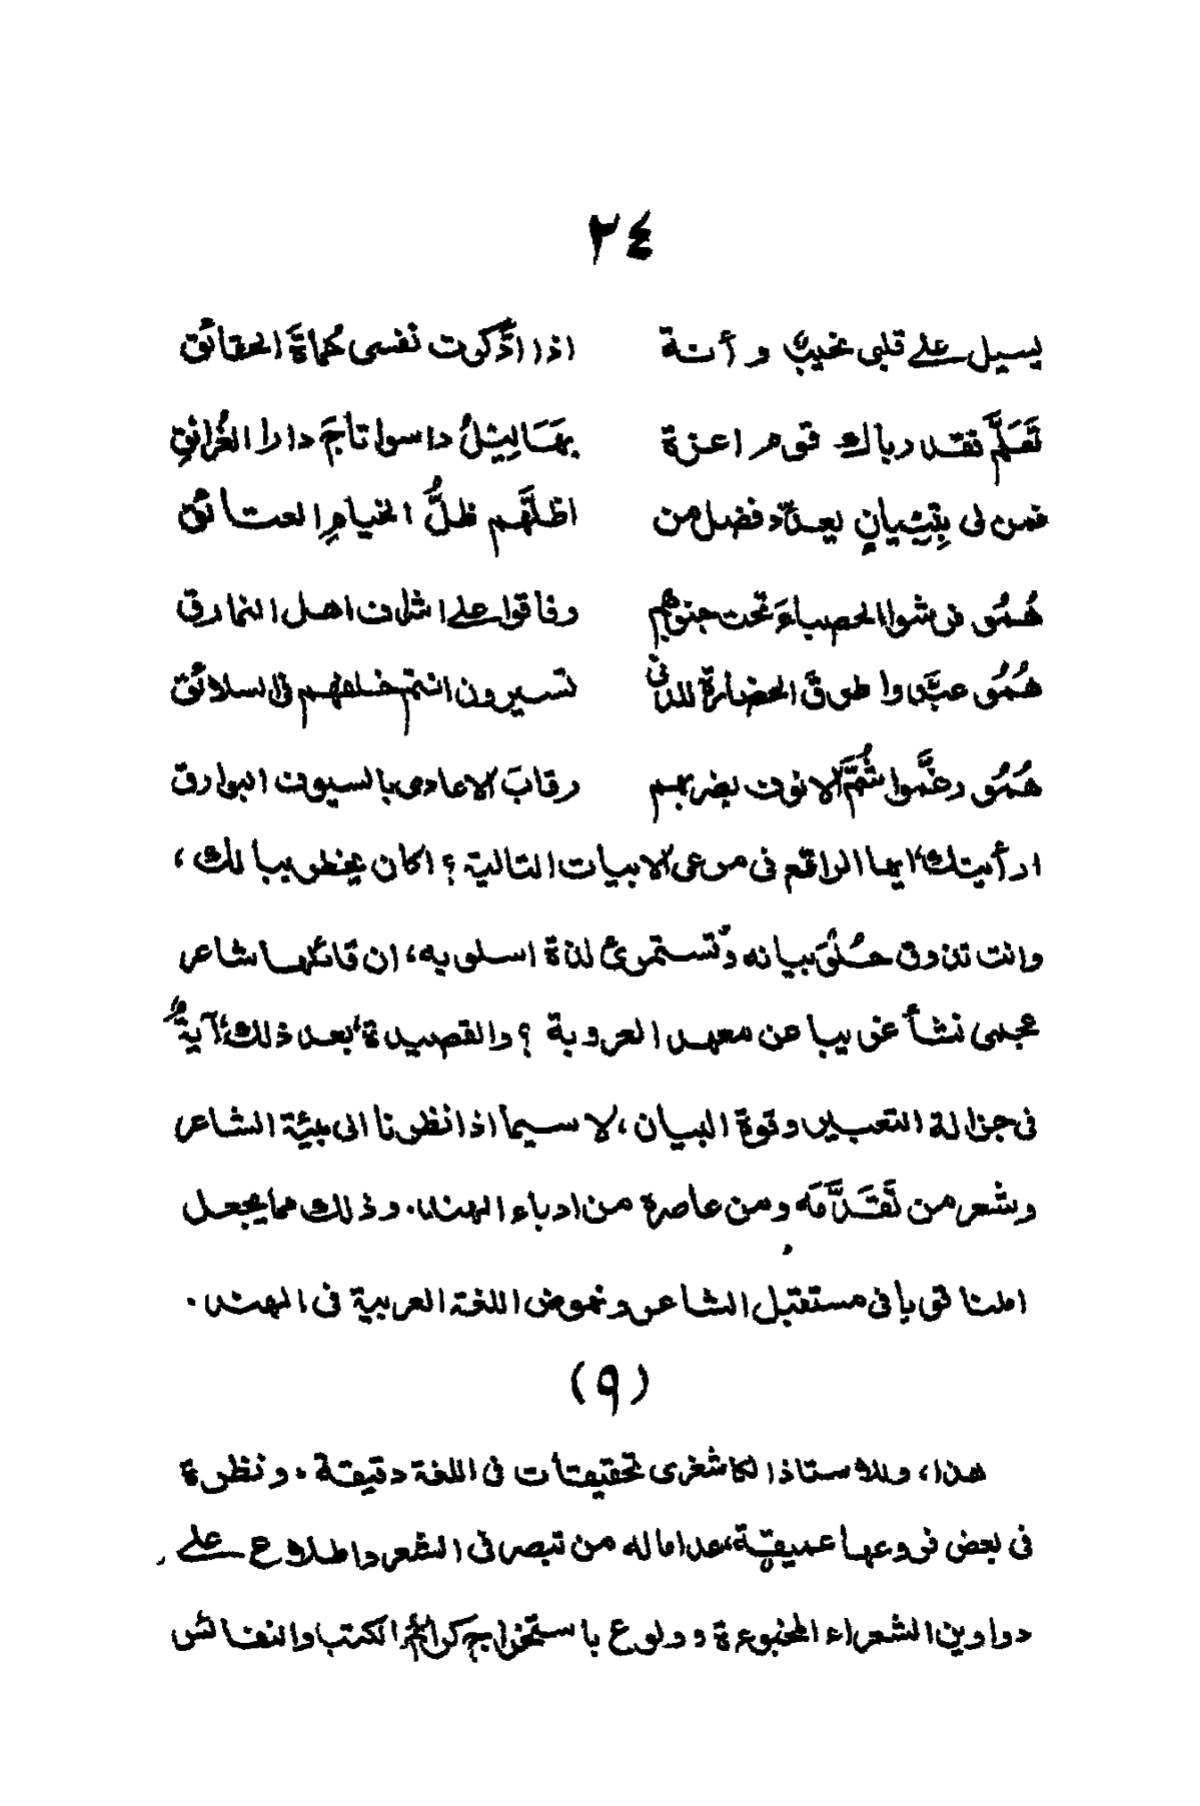 ٢٤
يسيل على قلبى نحيبٌ و أنة اذا اذَّكرت نفسى حُماةَ الحقائق
تَعَلَّم فقد رباك قوم اعزة بهَالِيْلُ داسوا تاجَ دارا الغُرانِقِ
فمن لى بِفِتيانٍ يعدّد فضل من اظلَّهم ظلُّ الخيامِ العتائق
هُمُو فرشوا الحصباءَ تحت جنوبهم وفاقوا على اشراف اهل النمارق
هُمُو عبَّدوا طرقَ الحضارة للدنى تسيرون انتم خلفهم فى السلائق
هُمُو رغَّموا شُمَّ الانوف بضربهم رقابَ الاعادى بالسيوف البوارق
ارأيتك ايها الراقع فى مرعى الابيات التالية؟ اكان يخطر ببالك،
وانت تذوق حُلْوَ بيانه وتستمرئ لذة اسلوبه، ان قائلها شاعر
عجمى نشأ غريبا عن معهد العروبة؟ والقصيدة، بعد ذلك، آيةٌ
فى جزالة التعبير وقوة البيان، لا سيما اذا نظرنا الى بيئة الشاعر
وشعر من تَقَدَّمَه ومن عاصره من ادباء الهند. وذلك مما يجعل
املنا قويا فى مستقبل الشاعر ونهوض اللغة العربية فى الهند.
(٩)
هذا، وللاستاذ الكاشغرى تحقيقات فى اللغة دقيقة. ونظرة
فى بعض فروعها عميقة، عدا ماله من تبصر فى الشعر واطلاع على
دواوين الشعراء المخبوءة، وولوع باستخراج كرائم الكتب والنفائس